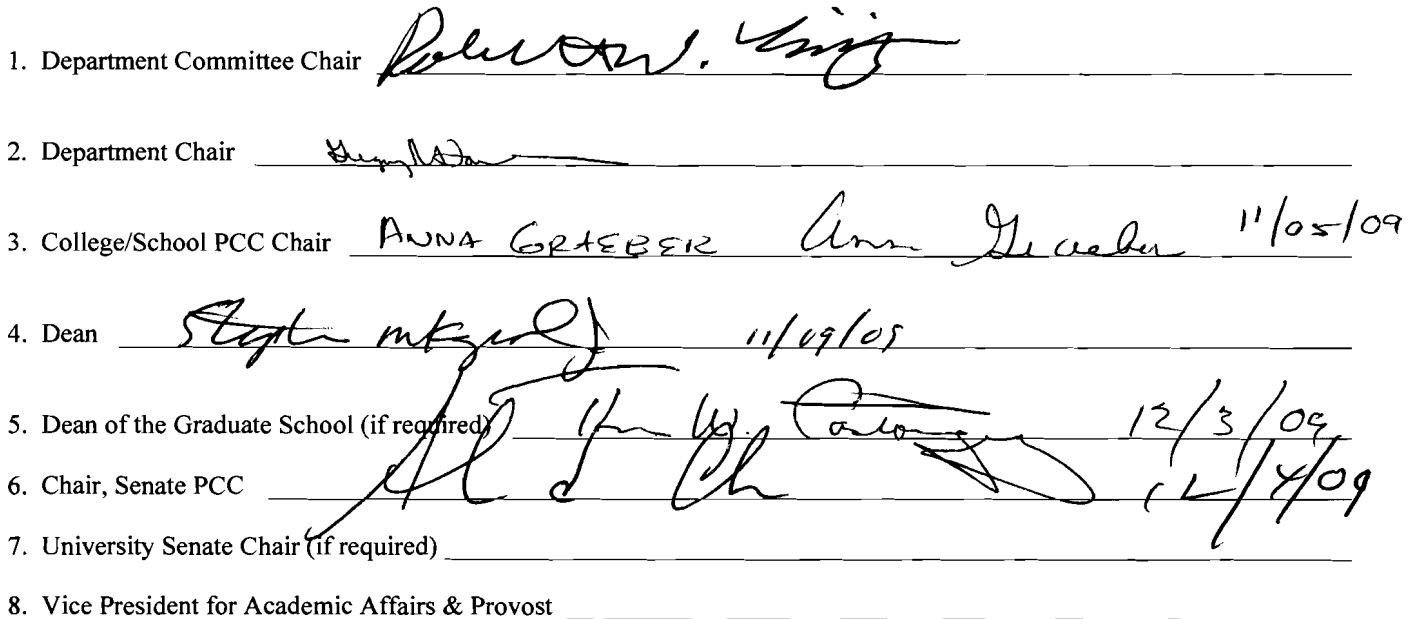 1. Department Committee Chair Robert W.
2. Department Chair
3. College/School PCC Chair ANNA GRAEBER Anna Graeber 11/05/09
4. Dean 11/09/09
5. Dean of the Graduate School (if required) 12/3/09
6. Chair, Senate PCC 12/4/09
7. University Senate Chair (if required)
8. Vice President for Academic Affairs & Provost